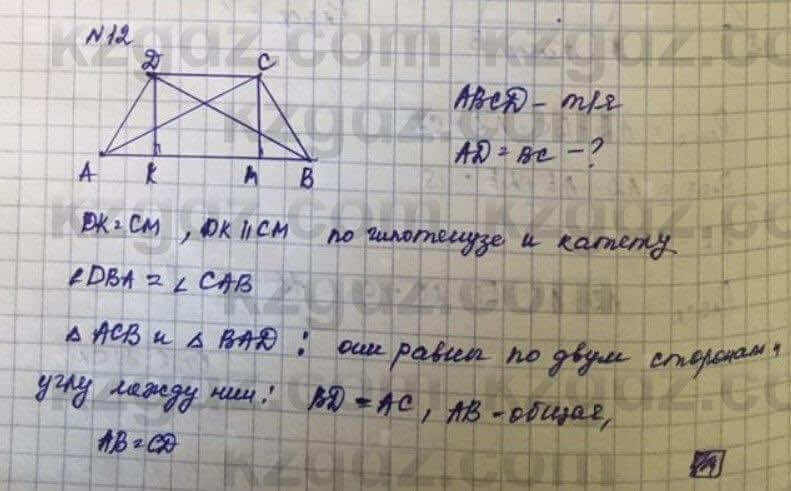 №12
D C
A K M B
ABCD – тр/я
AD = BC – ?
DK = CM , DK || CM по гипотенузе и катету
∠DBA = ∠ CAB
△ ACB и △ BAD : они равны по двум сторонам и
углу между ними: BD = AC, AB – общая,
AB = CD
kzgdz.com